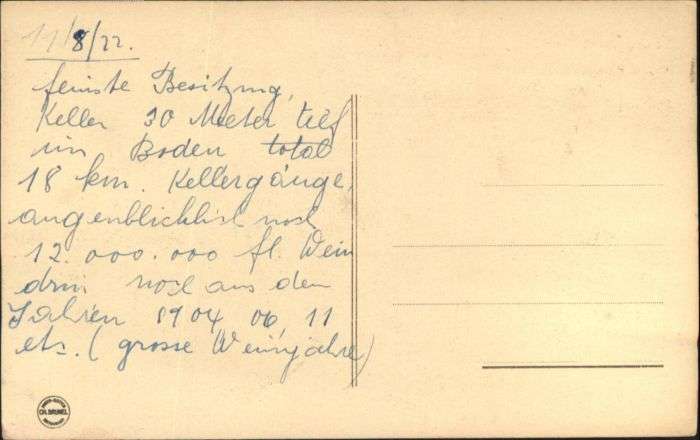 11/8/22.
feinste Besitzung,
Keller 30 Meter tief
im Boden total
18 km. Kellergänge,
augenblicklich noch
12.000.000 fl. Wein
drin noch aus den
Jahren 1904 06, 11
etc. (grosse Weinjahre)
CH. BRUNEL